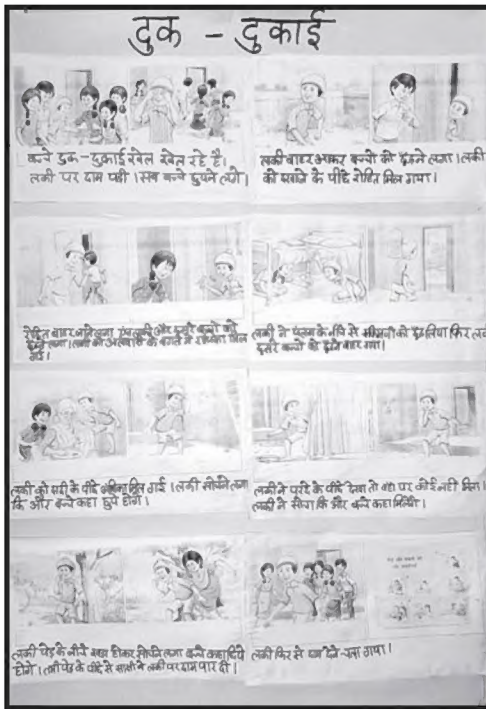 दुक - दुकाई
बच्चे दुक-दुकाई खेल खेल रहे है।
लकी पर दाम पडी। सब बच्चे छुपने लगे।
लकी बाहर आकर बच्चो को ढूढने लगा। लकी
को दरवाजे के पीछे रोहित मिल गया।
रोहित बाहर लकी और दूसरे बच्चो को
ढूढने लगा। लकी को अलमारी के बगल मे मिल
गई।
लकी ने पलंग के नीचे से को ढूढ लिया फिर लकी
दूसरे बच्चो को ढूढने बाहर गया।
लकी को दादी के पीछे मिल गई। लकी सोचने लगा
कि और बच्चे कहा छुपे होंगे।
लकी ने परदे के पीछे देखा तो वहा पर कोई नही मिला।
लकी ने सोचा कि और बच्चे कहा
लकी पेड़ के नीचे खडा होकर सोचने लगा बच्चे कहा छिपे
होंगे। तभी पेड़ के पीछे से साक्षी ने लकी पर दाम पार दी।
लकी फिर से दाम देने चला गया।